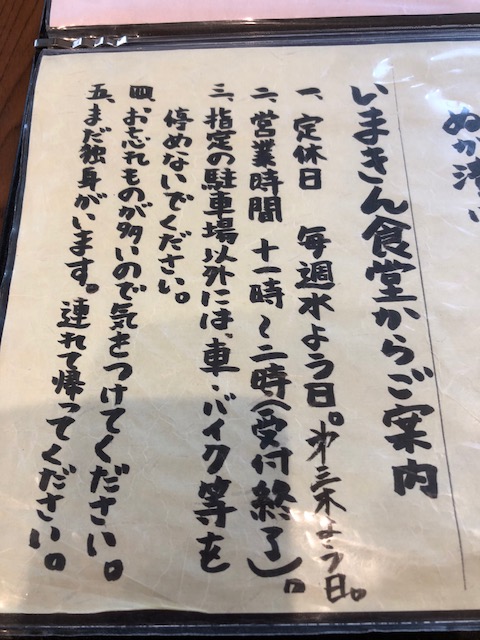 ぬか漬い
いまきん食堂からご案内
一、定休日 毎週水よう日。第三木よう日。
二、営業時間 十一時~二時(受付終了)。
三、指定の駐車場以外には、車・バイク等を
停めないでください。
四、お忘れものが多いので気をつけてください。
五、まだ独身がいます。連れて帰ってください。